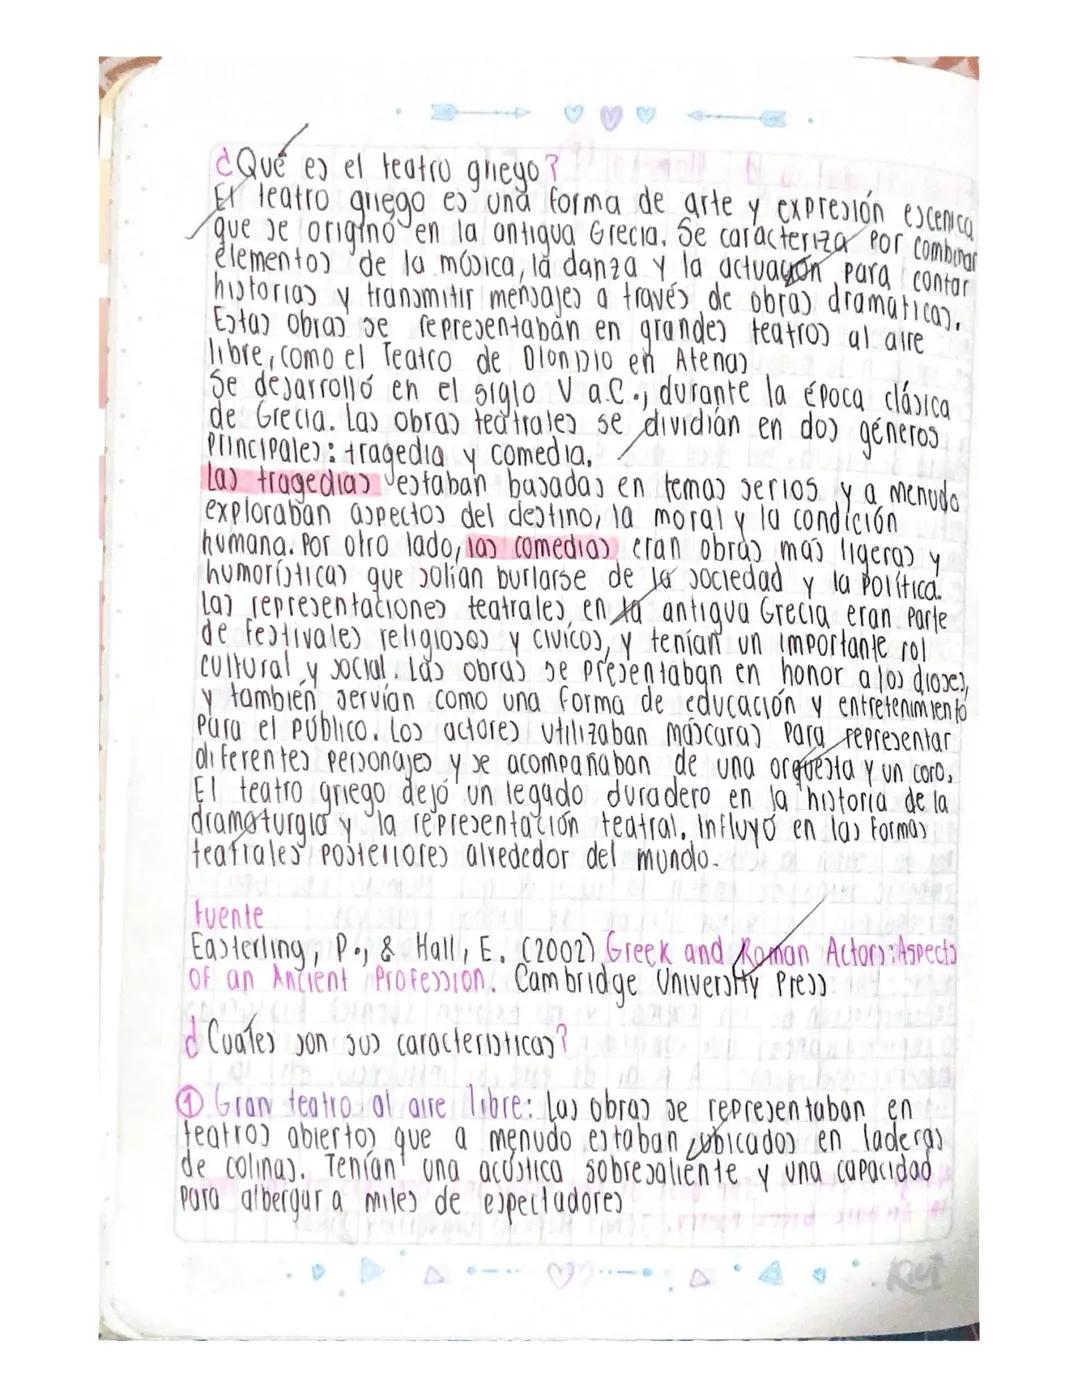 ¿Qué es el teatro griego?
El teatro griego es una forma de arte y expresión escenica
que se originó en la antigua Grecia. Se caracteriza por combinar
elementos de la música, la danza y la actuación para contar
historias y transmitir mensajes a través de obras dramáticas.
Estas obras se representaban en grandes teatros al aire
libre, como el Teatro de Dionisio en Atenas
Se desarrolló en el siglo V a.C., durante la época clásica
de Grecia. Las obras teatrales se dividían en dos géneros
principales: tragedia y comedia.
Las tragedias estaban basadas en temas serios y a menudo
exploraban aspectos del destino, la moral y la condición
humana. Por otro lado, las comedias eran obras más ligeras y
humorísticas que solían burlarse de la sociedad y la política.
Las representaciones teatrales en la antigua Grecia eran parte
de festivales religiosos y cívicos, y tenían un importante rol
cultural y social. Las obras se presentaban en honor a los dioses,
y también servían como una forma de educación y entretenimiento
para el público. Los actores utilizaban máscaras para representar
diferentes personajes y se acompañaban de una orquesta y un coro.
El teatro griego dejó un legado duradero en la historia de la
dramaturgia y la representación teatral. Influyó en las formas
teatrales posteriores alrededor del mundo.
Fuente
Easterling, P., & Hall, E. (2002) Greek and Roman Actors: Aspects
of an Ancient Profession. Cambridge University Press
¿Cuáles son sus características?
1 Gran teatro al aire libre: Las obras se representaban en
teatros abiertos que a menudo estaban ubicados en laderas
de colinas. Tenían una acústica sobresaliente y una capacidad
para albergar a miles de espectadores